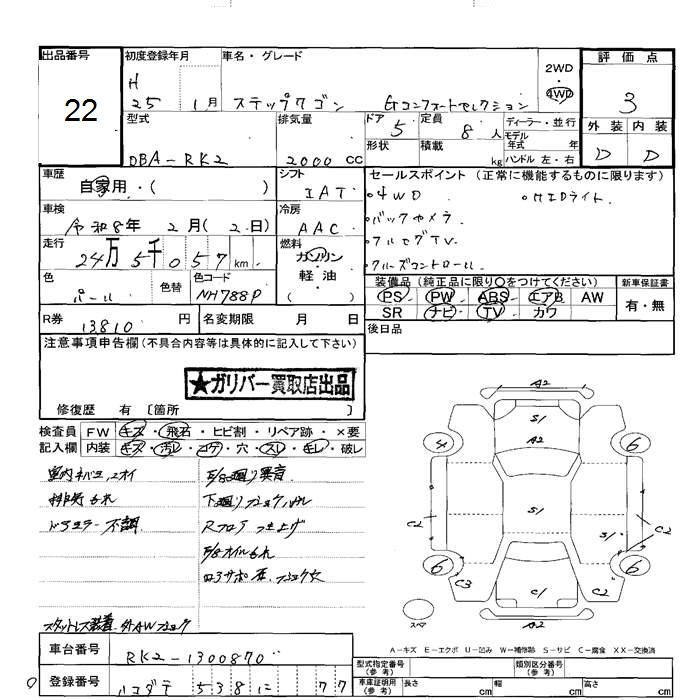 出品番号
22
初度登録年月
H
25 1月
車名・グレード
ステップワゴン Gコンフォートセレクション
2WD
4WD
評価点
3
外装 内装
D D
型式
DBA-RK2
排気量
2000 cc
ドア 5
形状
定員 8 人
積載 kg
ディーラー・並行
モデル
年式 年
ハンドル 左・右
車歴
自家用・( )
シフト
IAT
セールスポイント (正常に機能するものに限ります)
・4WD ・HIDライト
・バックカメラ
・フルセグTV
・クルーズコントロール
車検
令和8年 2月(2日)
冷房
AAC
走行
24万5千057km
燃料
ガソリン
軽油
( )
色
パール
色替
色コード
NH788P
装備品 (純正品に限り○をつけてください)
PS PW ABS エアB AW
SR ナビ TV カワ
新車保証書
有・無
R券 13810 円
名変期限 月 日
後日品
注意事項申告欄(不具合内容等は具体的に記入して下さい)
★ガリバー買取店出品
修復歴 有 〔箇所 〕
検査員
記入欄
FW キズ・飛石・ヒビ割・リペア跡・×要
内装 キズ・汚レ・コゲ・穴・スレ・キレ・破レ
車内 ネバコ、ニオイ
排気もれ
ドアミラー不調
スタットレス装着
E/g廻り異音
下廻り
Rフロア つき上げ
E/gオイルもれ
A2
S1
A2
4 6
S1
C2 S1 C2
6 6
C3 C1 C2
A2
スペア
A-キズ E-エクボ U-凹み W-補修跡 S-サビ C-腐食 XX-交換済
車台番号
RK2-1300870
登録番号
ハコダテ 538 に 77
型式指定番号
(参考)
類別区分番号
(参考)
車庫証明用
(参考)
長さ cm 幅 cm 高さ cm